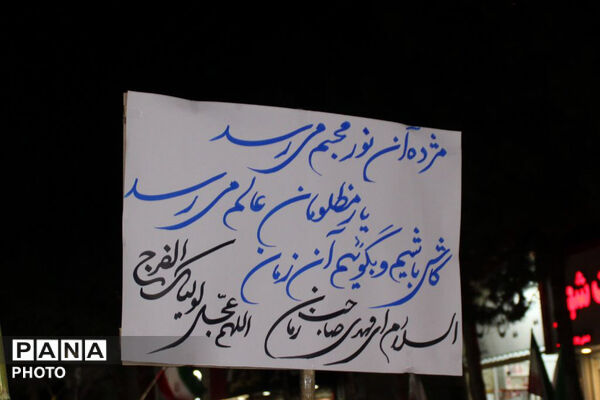 مژده آن نور مجسم می رسد
یار مظلومان عالم می رسد
کاش باشیم و بگوئیم آن زمان
السلام ای مهدی صاحب زمان
اللهم عجل لولیک الفرج
PANA
PHOTO